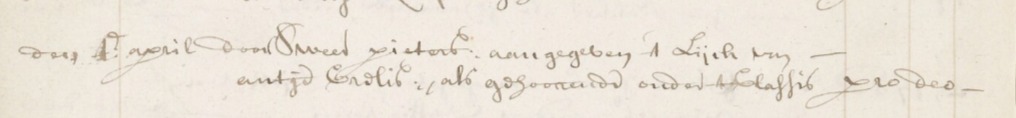 den 1.e april door Sweer pieters: aangegeven 't Lijck van —
antje Eedlis:, als gehoorende onder 't Classis pro deo —